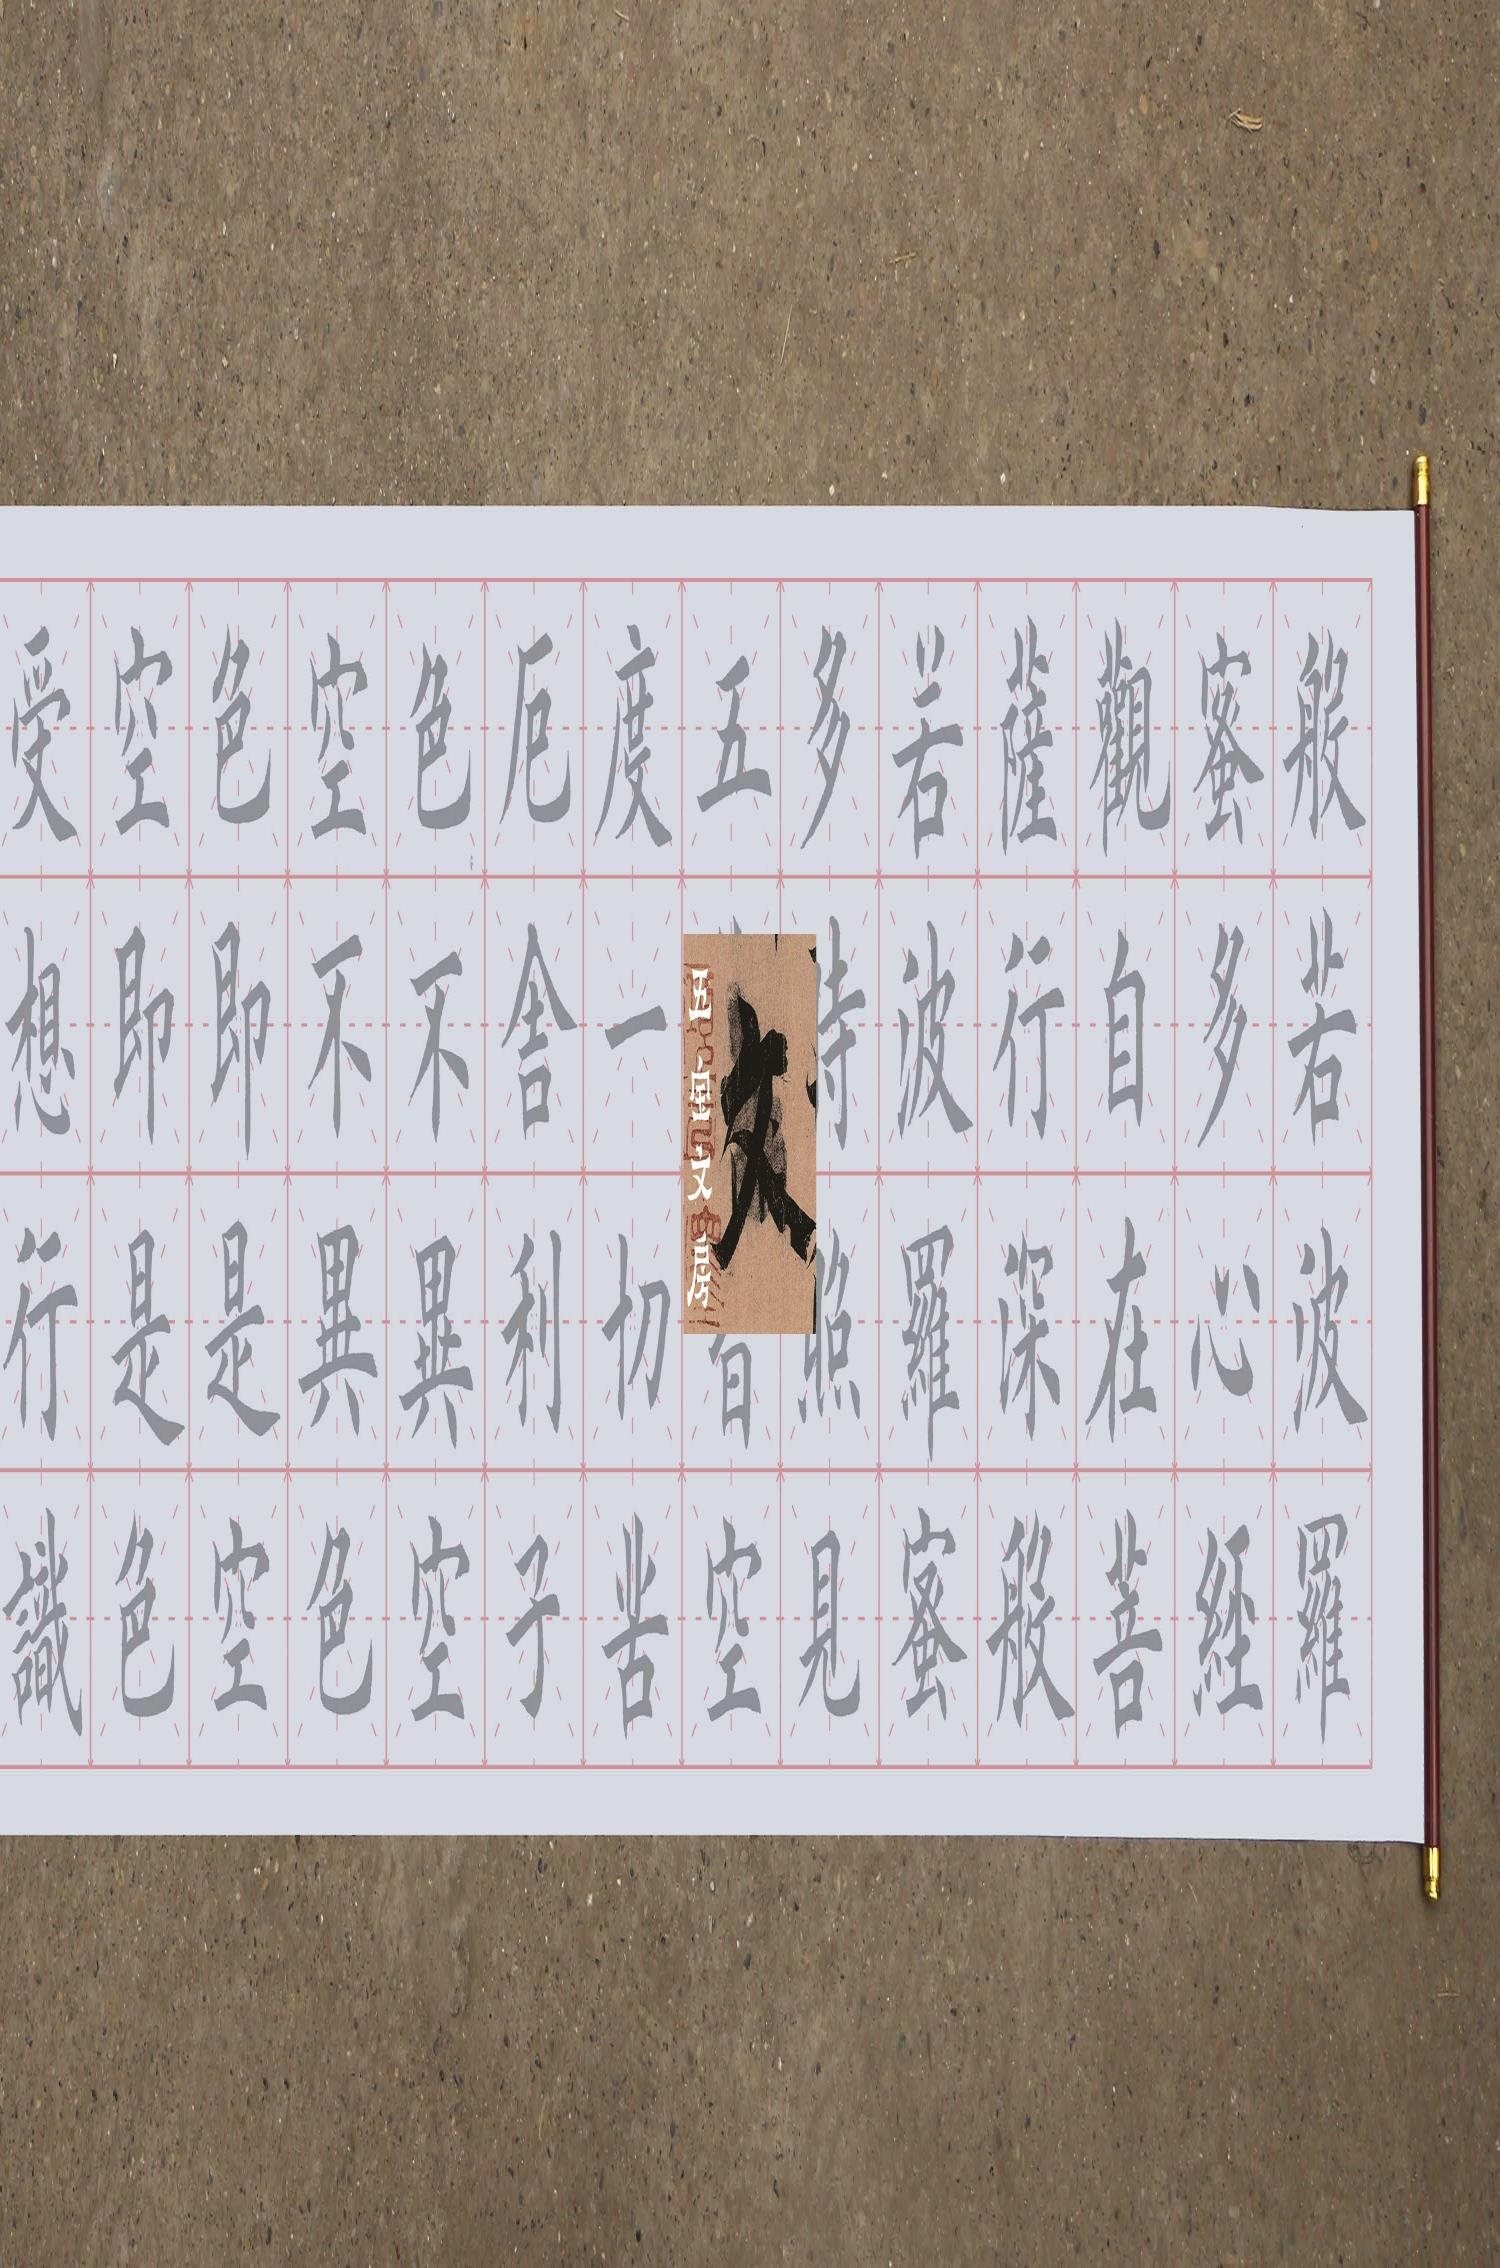 般若波羅
蜜多心經
觀自在菩
薩行深般
若波羅蜜
多時照見
五皆空
度一切苦
厄舍利子
色不異空
空不異色
色即是空
空即是色
受想行識
文房